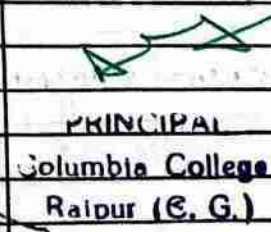 PRINCIPAL
Columbia College
Raipur (C. G.)